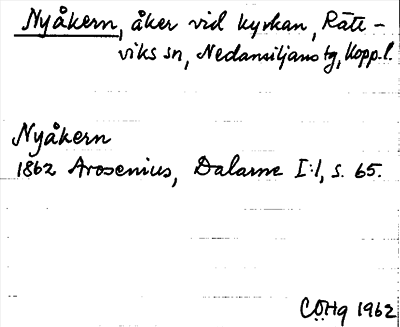 Nyåkern, åker vid kyrkan, Rätt-
viks sn, Nedansiljans tg, Kopp.l.
Nyåkern
1862 Arosenius, Dalarne I:1, s. 65.
CÖHg 1962